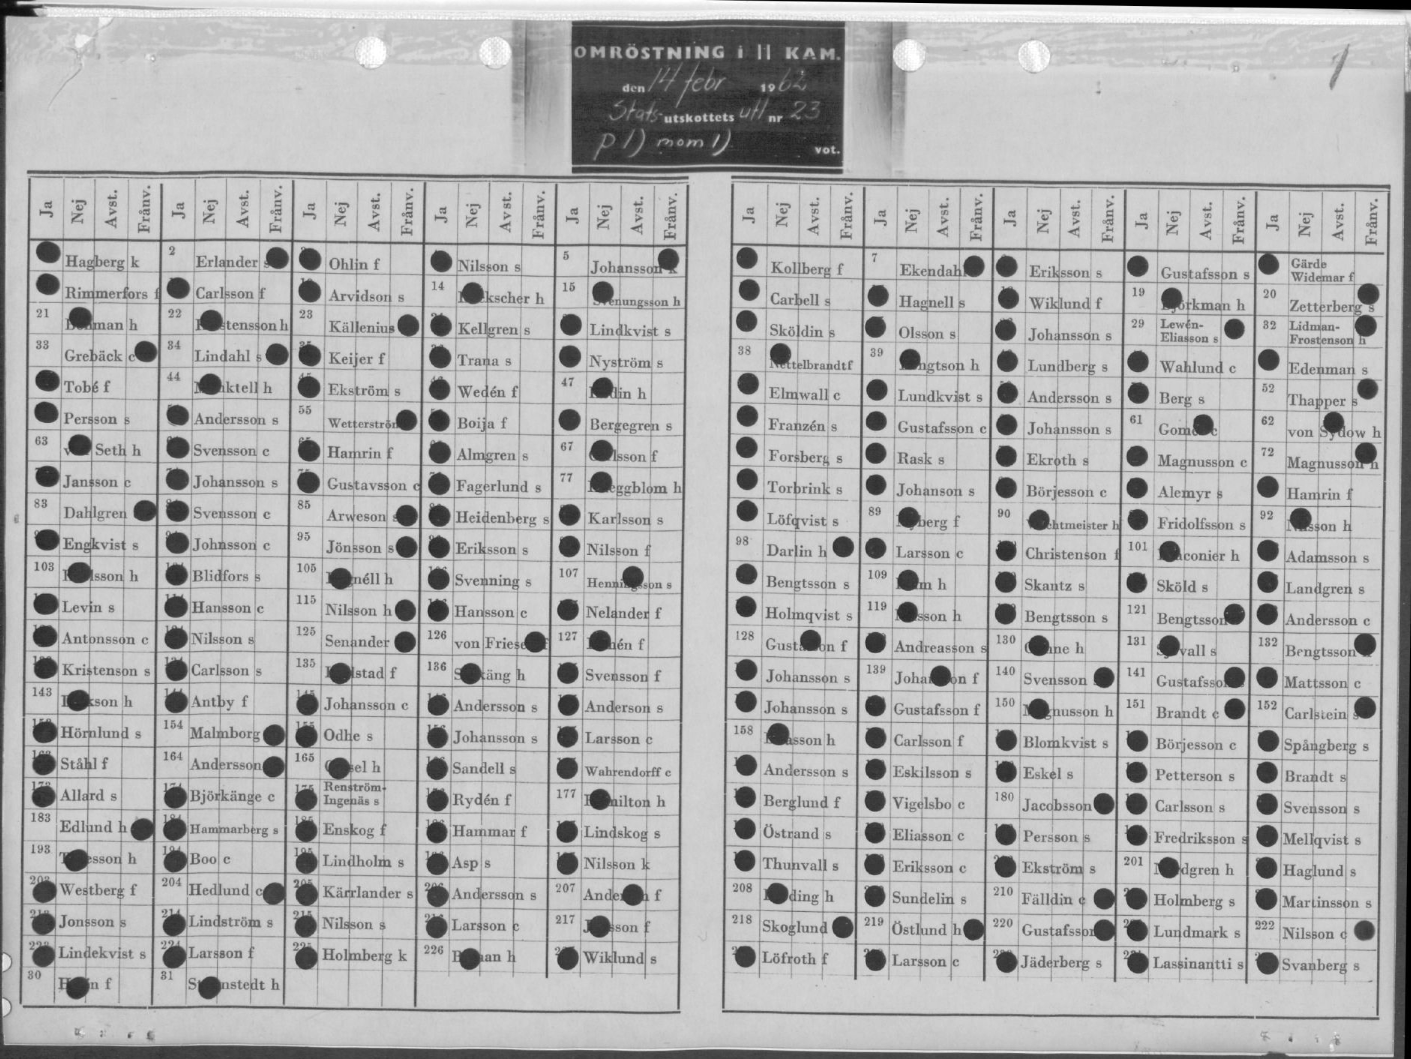 OMRÖSTNING i II KAM.
den 14 febr 1962
Stats-utskottets utl nr 23
p 1) mom 1) vot.
1
Ja Nej Avst. Frånv. Ja Nej Avst. Frånv. Ja Nej Avst. Frånv. Ja Nej Avst. Frånv. Ja Nej Avst. Frånv.
Hagberg k 2 Erlander Ohlin f Nilsson s 5 Johansson k
Rimmerfors f Carlsson f Arvidson s 14 15
21 22 23 Källenius Kellgren s Lindkvist s
33 Grebäck c 34 Lindahl s Keijer f Trana s Nyström s
Tobé f 44 Ekström s Wedén f 47
Persson s Andersson s 55 Wetterström Boija f Bergegren s
63 Seth h Svensson c Hamrin f Almgren s 67
Jansson c Johansson s Gustavsson c Fagerlund s 77
83 Dahlgren Svensson c 85 Arweson Heidenberg s Karlsson s
Engkvist s Johnsson c 95 Jönsson s Eriksson s Nilsson f
103 Blidfors s 105 Svenning s 107 Henningsson s
Levin s Hansson c 115 Nilsson h Hansson c Nelander f
Antonsson c Nilsson s 125 Senander 126 von Friesen 127
Kristenson s Carlsson s 135 136 Svensson f
143 Antby f Johansson c Andersson s Anderson s
Hörnlund s 154 Malmborg Odhe s Johansson s Larsson c
Ståhl f 164 Andersson 165 Sandell s Wahrendorff c
Allard s Björkänge c Renström-Ingenäs s Rydén f 177 Hamilton h
183 Edlund h Hammarberg s Enskog f Hammar f Lindskog s
193 Boo c Lindholm s Asp s Nilsson k
Westberg f 204 Hedlund c Kärrlander s Andersson s 207 f
Jonsson s Lindström s Nilsson s Larsson c 217 f
Lindekvist s Larsson f Holmberg k 226 h Wiklund s
30 f 31 h
Ja Nej Avst. Frånv. Ja Nej Avst. Frånv. Ja Nej Avst. Frånv. Ja Nej Avst. Frånv. Ja Nej Avst. Frånv.
Kollberg f 7 Ekendahl Eriksson s Gustafsson s Gärde Widemar f
Carbell s Hagnell s Wiklund f 19 Björkman h 20 Zetterberg s
Sköldin s Olsson s Johansson s 29 Lewén-Eliasson s 32 Lidman-Frostenson h
38 Nettelbrandt f 39 Bengtson h Lundberg s Wahlund c Edenman s
Elmwall c Lundkvist s Andersson s Berg s 52 Thapper s
Franzén s Gustafsson c Johansson s 61 62 von Sydow h
Forsberg s Rask s Ekroth s Magnusson c 72 Magnusson h
Torbrink s Johanson s Börjesson c Alemyr s Hamrin f
Löfqvist s 89 f 90 Fridolfsson s 92 h
98 Darlin h Larsson c Christenson f 101 h Adamsson s
Bengtsson s 109 h Skantz s Sköld s Landgren s
Holmqvist s 119 h Bengtsson s 121 Bengtsson Andersson c
128 Gustafson f Andreasson s 130 h 131 s 132 Bengtsson
Johansson s 139 Johansson f 140 Svensson 141 Gustafsson Mattsson c
Johansson s Gustafsson f 150 Magnusson h 151 Brandt c 152 Carlstein s
158 h Carlsson f Blomkvist s Börjesson c Spångberg s
Andersson s Eskilsson s Eskel s Petterson s Brandt s
Berglund f Vigelsbo c 180 Jacobsson Carlsson s Svensson s
Östrand s Eliasson c Persson s Fredriksson s Mellqvist s
Thunvall s Eriksson c Ekström s 201 Nordgren h Haglund s
208 h Sundelin s 210 Fälldin c Holmberg s Martinsson s
218 Skoglund 219 Östlund h 220 Gustafsson Lundmark s 222 Nilsson c
Löfroth f Larsson c Jäderberg s Lassinantti s Svanberg s